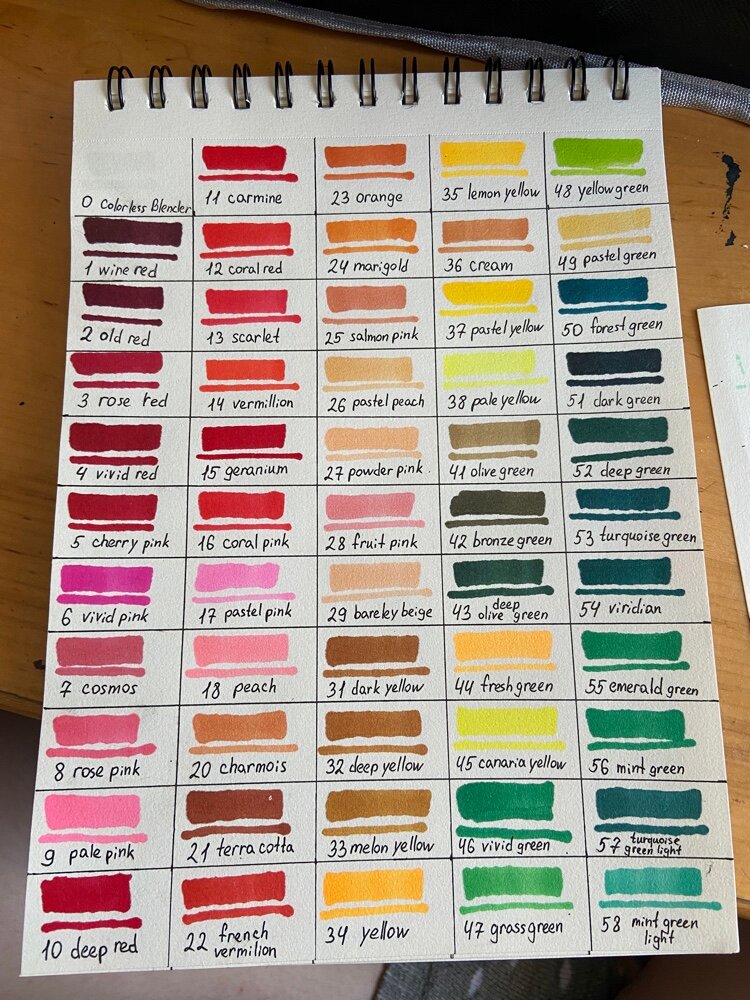 0 Colorless Blender
11 carmine
23 orange
35 lemon yellow
48 yellow green
1 wine red
12 coral red
24 marigold
36 cream
49 pastel green
2 old red
13 scarlet
25 salmon pink
37 pastel yellow
50 forest green
3 rose red
14 vermillion
26 pastel peach
38 pale yellow
51 dark green
4 vivid red
15 geranium
27 powder pink.
41 olive green
52 deep green
5 cherry pink
16 coral pink
28 fruit pink
42 bronze green
53 turquoise green
6 vivid pink
17 pastel pink
29 bareley beige
43 deep
olive green
54 viridian
7 cosmos
18 peach
31 dark yellow
44 fresh green
55 emerald green
8 rose pink
20 charmois
32 deep yellow
45 canaria yellow
56 mint green
9 pale pink
21 terra cotta
33 melon yellow
46 vivid green
57 turquoise
green light
10 deep red
22 french
vermilion
34 yellow
47 grass green
58 mint green
light